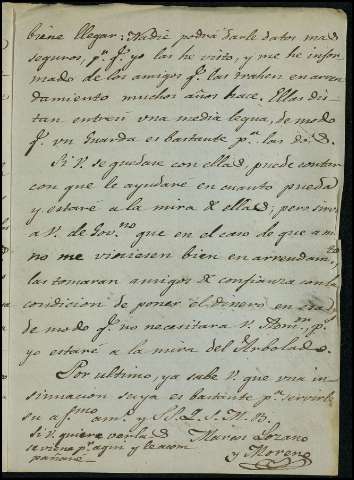 biene llegar; Nadie podrá darle datos mas
seguros, p.r q.e yo las he visto, y me he infor-
mado de los amigos q.e las trahen en arren-
damiento muchos años hace. Ellas dis-
tan entre si vna media legua, de modo
q.e vn Guarda es bastante p.a las dos.
Si V. se quedase con ellas, puede contar
con que le ayudaré en cuanto pueda
y estaré a la mira de ellas; pero
a V. de que en el caso de que a mi
no me viniesen bien en arrendam.to
las tomaran amigos de confianza con la
condicion de poner el dinero en
de modo q.e no necesitara V. Adm.or p.s
yo estaré a la mira del Arbolado.
Por ultimo, ya sabe V. que vna in-
sinuacion suya es bastante p.a servirle
su af.smo am.o y S. Q. S. M. B.
Si V. quiere verlas Marcos Lozano
se viene p.r aqui y le acom y Moreno
pañaré